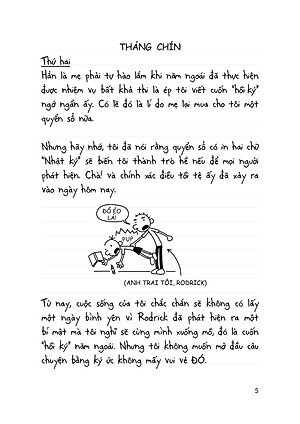 THÁNG CHÍN
Thứ hai
Hẳn là mẹ phải tự hào lắm khi năm ngoái đã thực hiện
được nhiệm vụ bất khả thi là ép tôi viết cuốn "hồi ký"
ngớ ngẩn ấy. Có lẽ đó là lí do mẹ lại mua cho tôi một
quyển sổ nữa.
Nhưng hãy nhớ, tôi đã nói rằng quyển sổ có in hai chữ
"Nhật ký" sẽ biến tôi thành trò hề nếu để mọi người
phát hiện. Chà! Và chính xác điều tồi tệ ấy đã xảy ra
vào ngày hôm nay.
ĐỒ ẺO
LẢ!
PỤP
(ANH TRAI TÔI, RODRICK)
Từ nay, cuộc sống của tôi chắc chắn sẽ không có lấy
một ngày bình yên vì Rodrick đã phát hiện ra một
bí mật mà tôi nghĩ sẽ cùng mình xuống mồ, đó là cuốn
"hồi ký" năm ngoái. Nhưng tôi không muốn mở đầu câu
chuyện bằng ký ức không mấy vui vẻ ĐÓ.
5